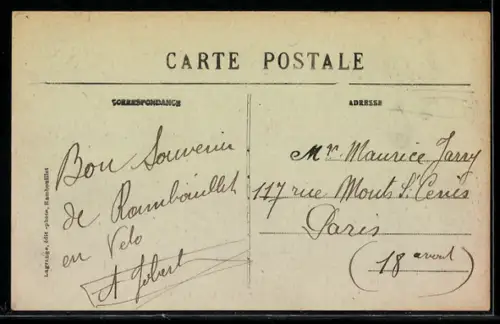 CARTE POSTALE
CORRESPONDANCE
Bon Souvenir
de Rambouillet
en Velo
A Jobert
ADRESSE
Mr. Maurice Jarry
117 rue Monts St Cenis
Paris
(18 avout)
Lagrange, édit.-photo, Rambouillet